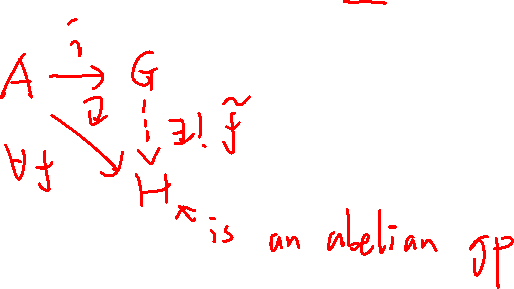 i
A → G
∀f ↻ ∃! f̃
H
is an abelian gp